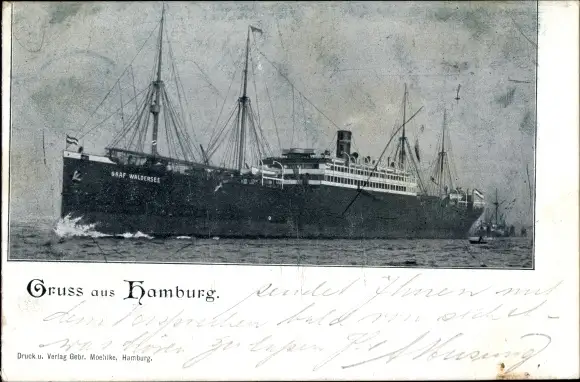 GRAF WALDERSEE
Gruss aus Hamburg.
sendet Ihnen mit
dem Versprechen bald von sich et-
was hören zu lassen Ihr
Druck u. Verlag Gebr. Moehlke, Hamburg.